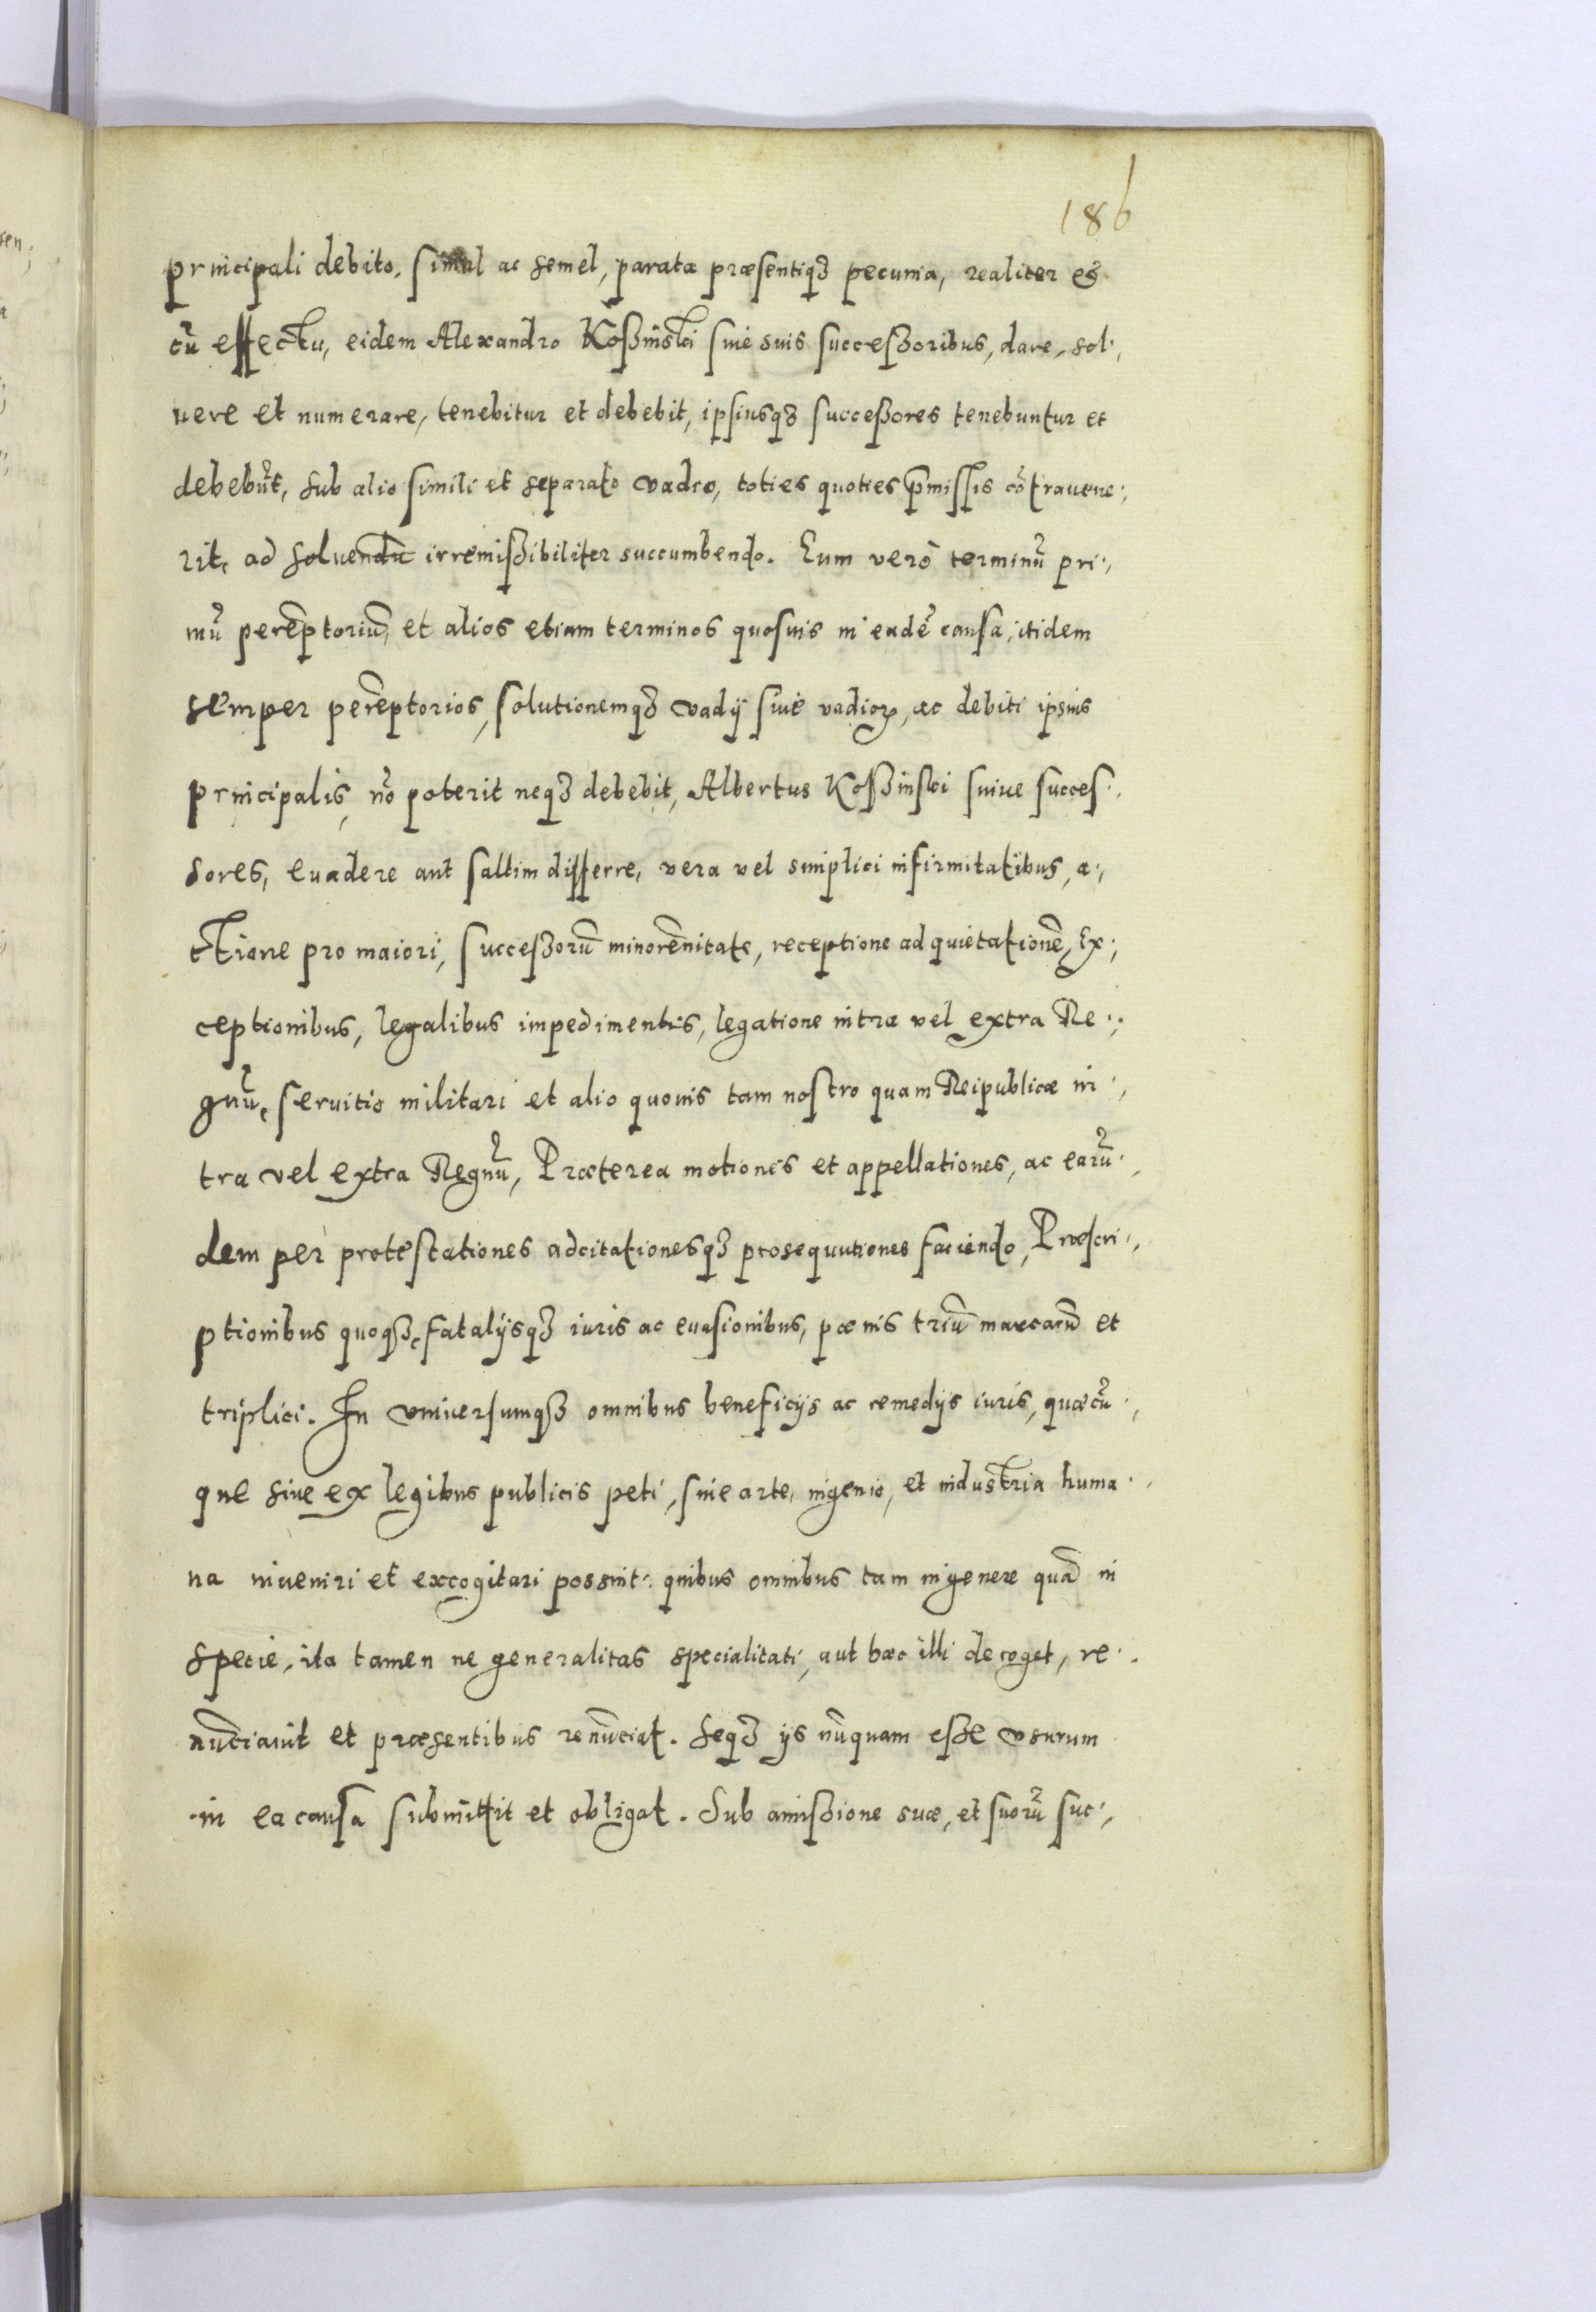 186
principali debito, simul ac semel, parata præsentiq3 pecunia, realiter et
cū effectu, eidem Alexandro Koßinski siue suis succeßoribus, dare, sol:,
uere et numerare, tenebitur et debebit, ipsiusq3 succeßores tenebuntur et
debebūt, sub alio simili et separato vadio, toties quoties p̄missis cōtrauene:,
rit, ad soluendū irremißibiliter succumbendo. Eum verò terminū pri:,
mū perēptoriū, et alios etiam terminos quosuis in eadē causa, itidem
semper perēptorios, solutionemq3 vadij siue vadioꝝ, ac debiti ipsius
principalis, nō poterit neq3 debebit, Albertus Koßinski suiue succes:,
sores, euadere aut saltim differre, vera vel simplici infirmitatibus, a:,
ctione pro maiori, succeßorū minorēnitate, receptione ad quietationē, Ex:,
ceptionibus, legalibus impedimentis, legatione intra vel extra Re:,
gnū, seruitio militari et alio quouis tam nostro quam Reipublicæ in:,
tra vel extra Regnū, Præterea motiones et appellationes, ac earū:,
dem per protestationes adcitationesq3 prosequutiones faciendo, Præscri:,
ptionibus quoq3, fatalijsq3 iuris ac euasionibus, pœnis triū marcarū et
triplici. In vniuersumq3 omnibus beneficijs ac remedijs iuris, quæcū:,
que siue ex legibus publicis peti, siue arte, ingenio, et industria huma:,
na inueniri et excogitari possint: quibus omnibus tam in genere quā in
specie, ita tamen ne generalitas specialitati, aut hæc illi deroget, re:.
nūciauit et præsentibus renūciat. Seq3 ijs nūquam eße vsurum
in ea causa submittit et obligat. Sub amißione suæ, et suorū suc:,